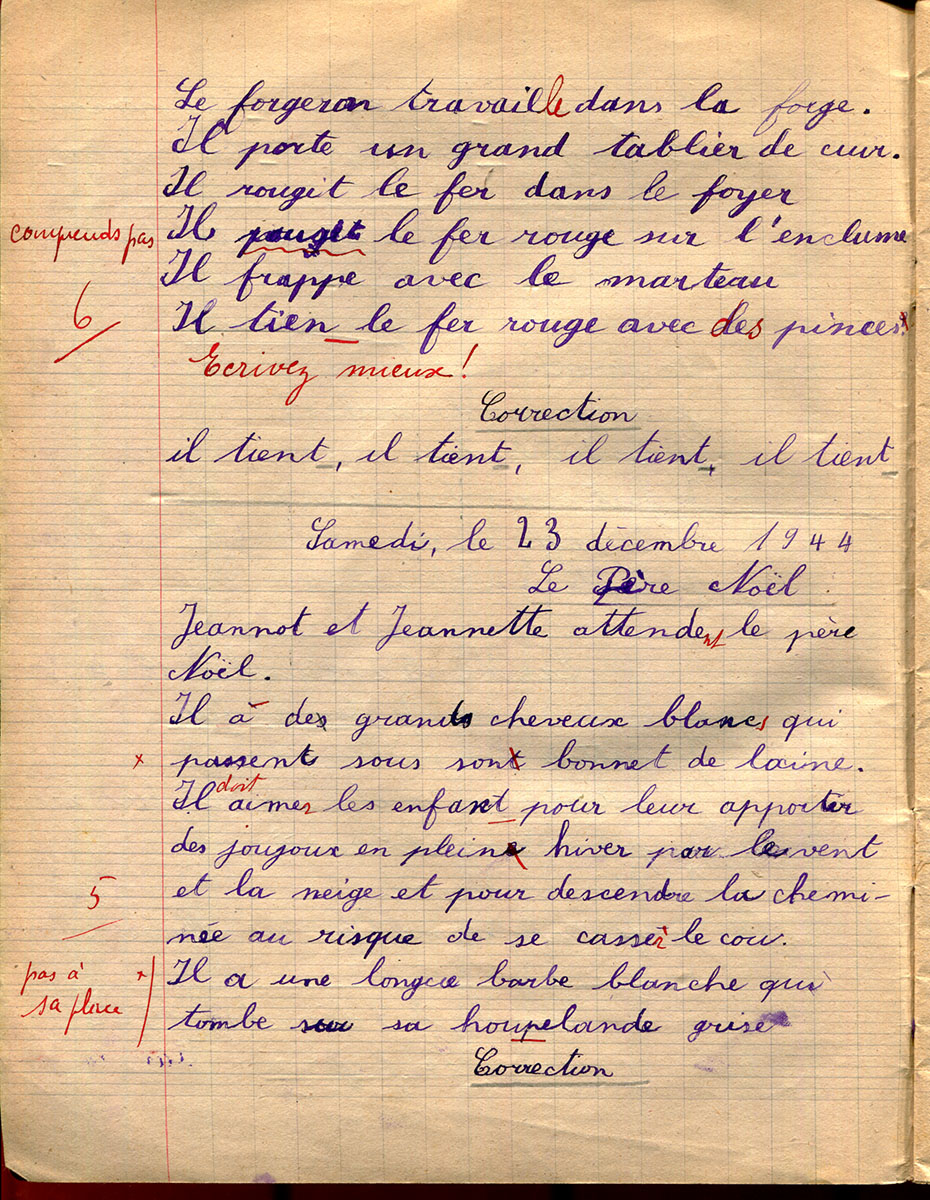 Le forgeron travaille dans la forge.
Il porte un grand tablier de cuir.
Il rougit le fer dans le foyer
comprends pas Il le fer rouge sur l'enclume
Il frappe avec le marteau
6 Il tien le fer rouge avec des pinces
Ecrivez mieux!
Correction
il tient, il tient, il tient, il tient
Samedi, le 23 décembre 1944
Le Père Noël
Jeannot et Jeannette attendent le père
Noël.
Il à des grands cheveux blancs qui
x passent sous sont bonnet de laine.
Il doit aimer les enfant pour leur apporter
des joujoux en pleine hiver par le vent
5 et la neige et pour descendre la chemi-
née au risque de se casser le cou.
pas à x Il a une longue barbe blanche qui
sa place tombe sur sa houpelande grise
Correction